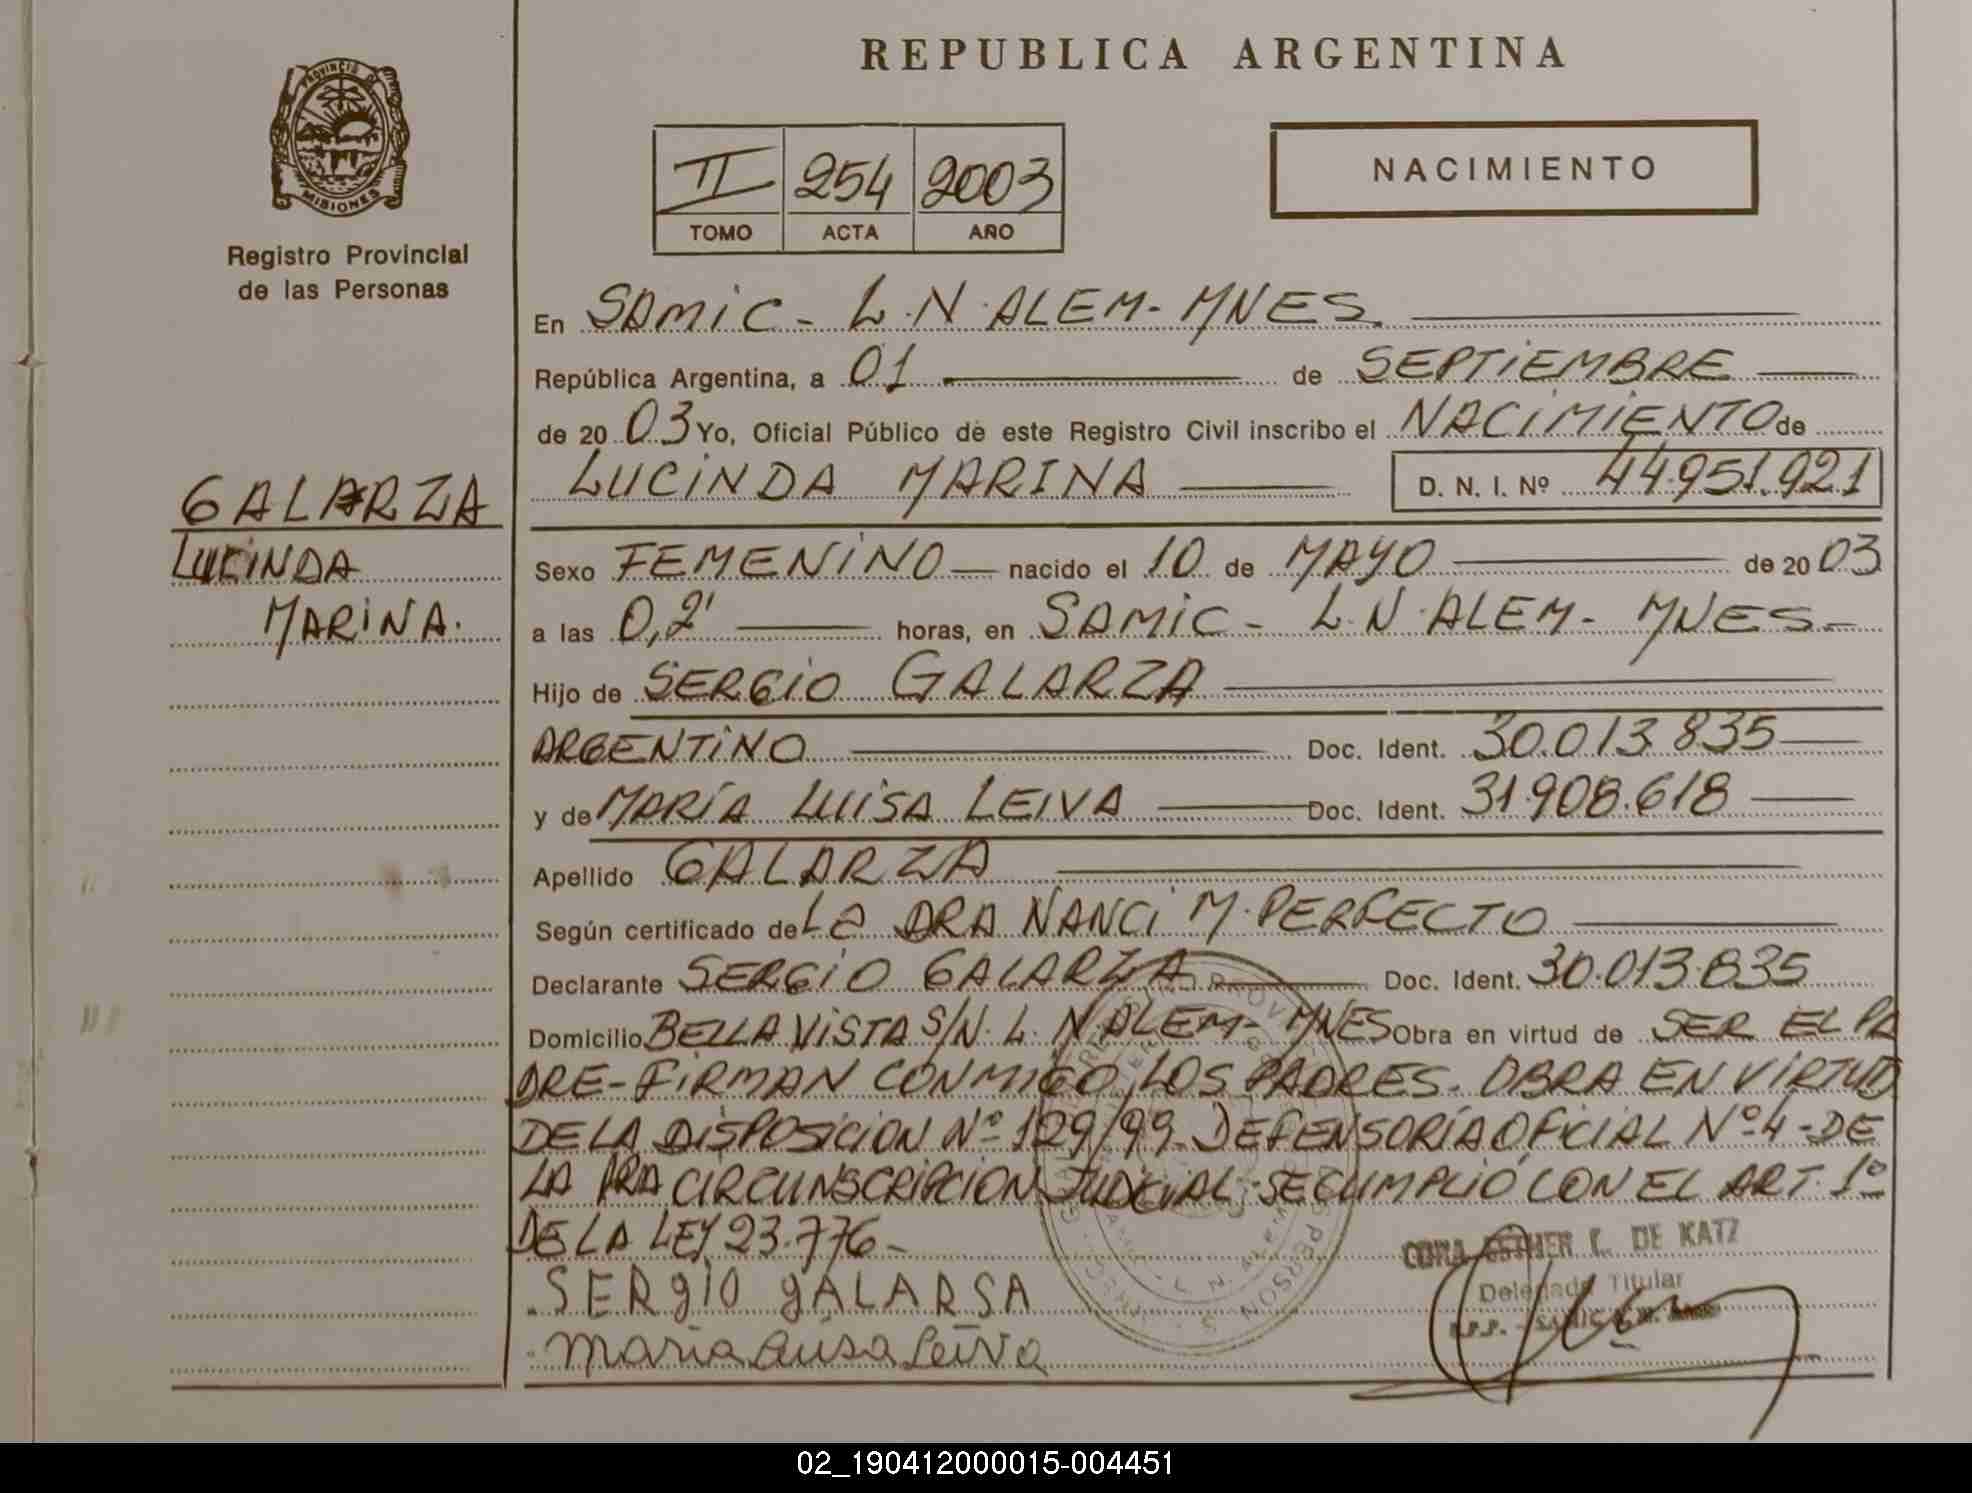 REPUBLICA ARGENTINA
PROVINCIA DE
MISIONES
Registro Provincial
de las Personas
II 254 2003
TOMO ACTA AÑO
NACIMIENTO
En SAMIC - L.N. ALEM - MNES.
República Argentina, a 01 de SEPTIEMBRE
de 20 03 Yo, Oficial Público de este Registro Civil inscribo el NACIMIENTO de
LUCINDA MARINA D. N. I. Nº 44.951.921
GALARZA
LUCINDA
MARINA.
Sexo FEMENINO nacido el 10 de MAYO de 20 03
a las 0,2' horas, en SAMIC - L.N. ALEM - MNES -
Hijo de SERGIO GALARZA
ARGENTINO Doc. Ident. 30.013.835
y de MARÍA LUISA LEIVA Doc. Ident. 31.908.618
Apellido GALARZA
Según certificado de La DRA NANCI M. PERFECTO
Declarante SERGIO GALARZA Doc. Ident. 30.013.835
Domicilio BELLA VISTA S/N. L. N. ALEM - MNES Obra en virtud de SER EL PA
DRE - FIRMAN CONMIGO, LOS PADRES. OBRA EN VIRTUD
DE LA DISPOSICION Nº 129/99 - DEFENSORÍA OFICIAL Nº 4 - DE
LA 1RA CIRCUNSCRIPCION JUDICIAL - SE CUMPLIÓ CON EL ART. 1º
DE LA LEY 23.776 -
SERGIO GALARSA
Maria Luisa Leiva
ESTHER DE KATZ
Delegada Titular
02_190412000015-004451